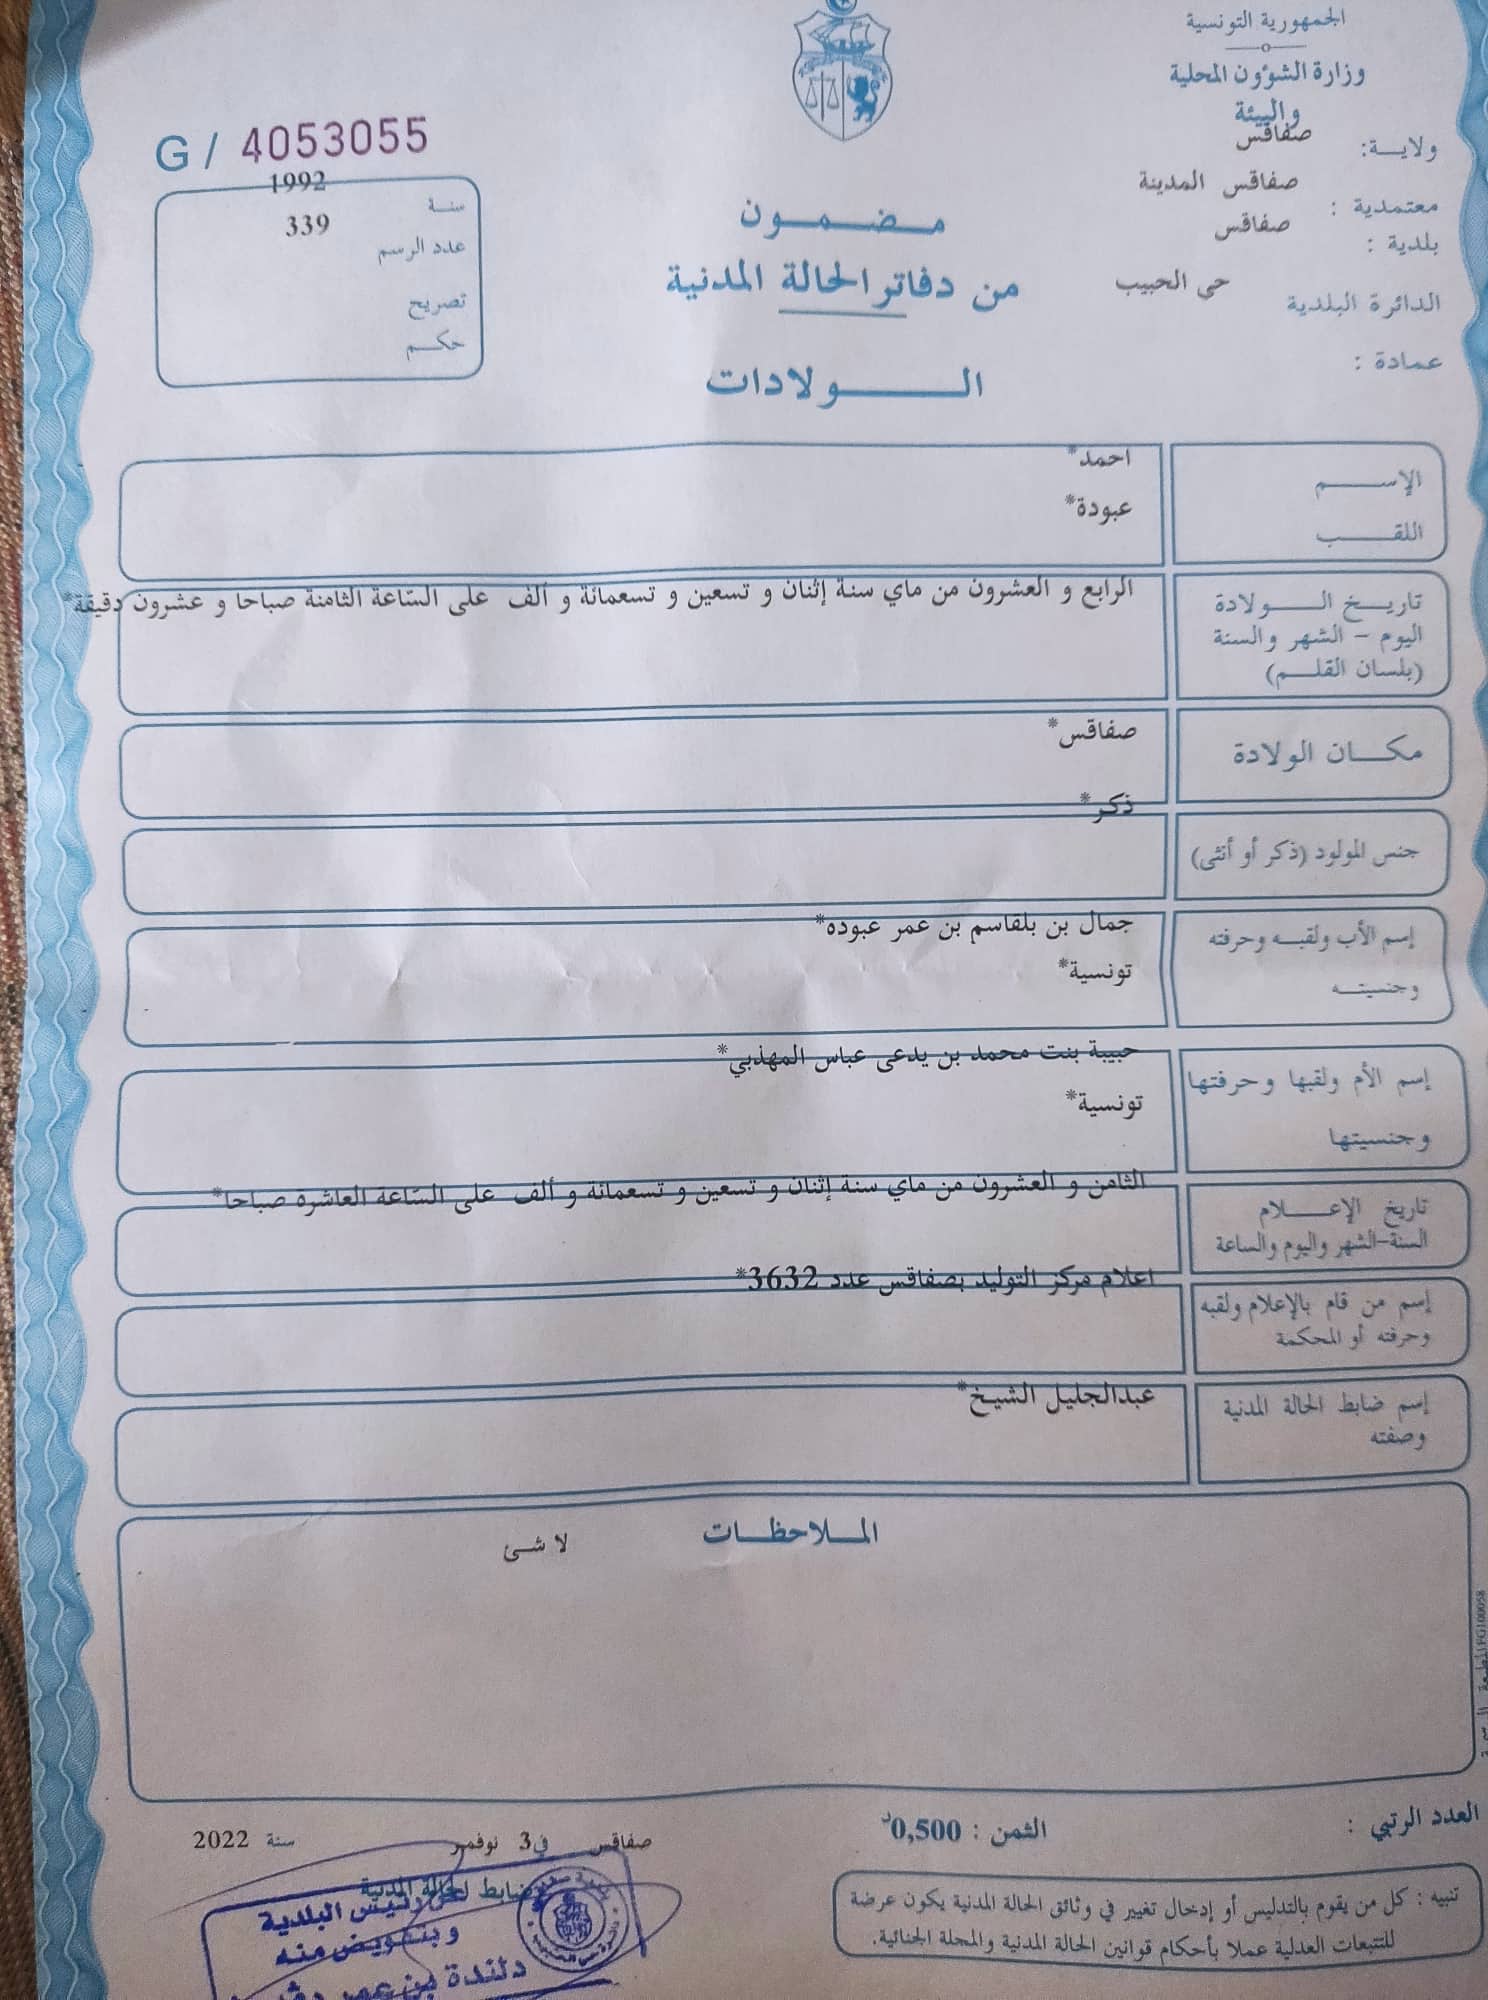 الجمهورية التونسية
وزارة الشؤون المحلية
والبيئة
ولاية: صفاقس
معتمدية : صفاقس المدينة
بلدية : صفاقس
الدائرة البلدية حي الحبيب
عمادة :
G / 4053055
سنة 1992
عدد الرسم 339
تصريح
حكم
مضمون
من دفاتر الحالة المدنية
الولادات
الإسم احمد*
اللقب عبودة*
تاريخ الولادة
اليوم - الشهر والسنة
(بلسان القلم)
الرابع و العشرون من ماي سنة إثنان و تسعين و تسعمائة و ألف على السّاعة الثامنة صباحا و عشرون دقيقة*
مكان الولادة صفاقس*
جنس المولود (ذكر أو أنثى) ذكر*
إسم الأب ولقبه وحرفته
وجنسيته
جمال بن بلقاسم بن عمر عبوده*
تونسية*
إسم الأم ولقبها وحرفتها
وجنسيتها
حبيبة بنت محمد بن يدعى عباس المهذبي*
تونسية*
تاريخ الإعلام
السنة-الشهر واليوم والساعة
الثامن و العشرون من ماي سنة إثنان و تسعين و تسعمائة و ألف على السّاعة العاشرة صباحا*
إسم من قام بالإعلام ولقبه
وحرفته أو المحكمة
اعلام مركز التوليد بصفاقس عدد 3632*
إسم ضابط الحالة المدنية
وصفته
عبدالجليل الشيخ*
الملاحظات
لا شئ
العدد الرتبي :
الثمن : 0,500د
صفاقس في 3 نوفمبر سنة 2022
ضابط الحالة المدنية
عن رئيس البلدية
وبتفويض منه
دلندة بن عمر
تنبيه : كل من يقوم بالتدليس أو إدخال تغيير في وثائق الحالة المدنية يكون عرضة
للتتبعات العدلية عملا بأحكام قوانين الحالة المدنية والمجلة الجنائية.